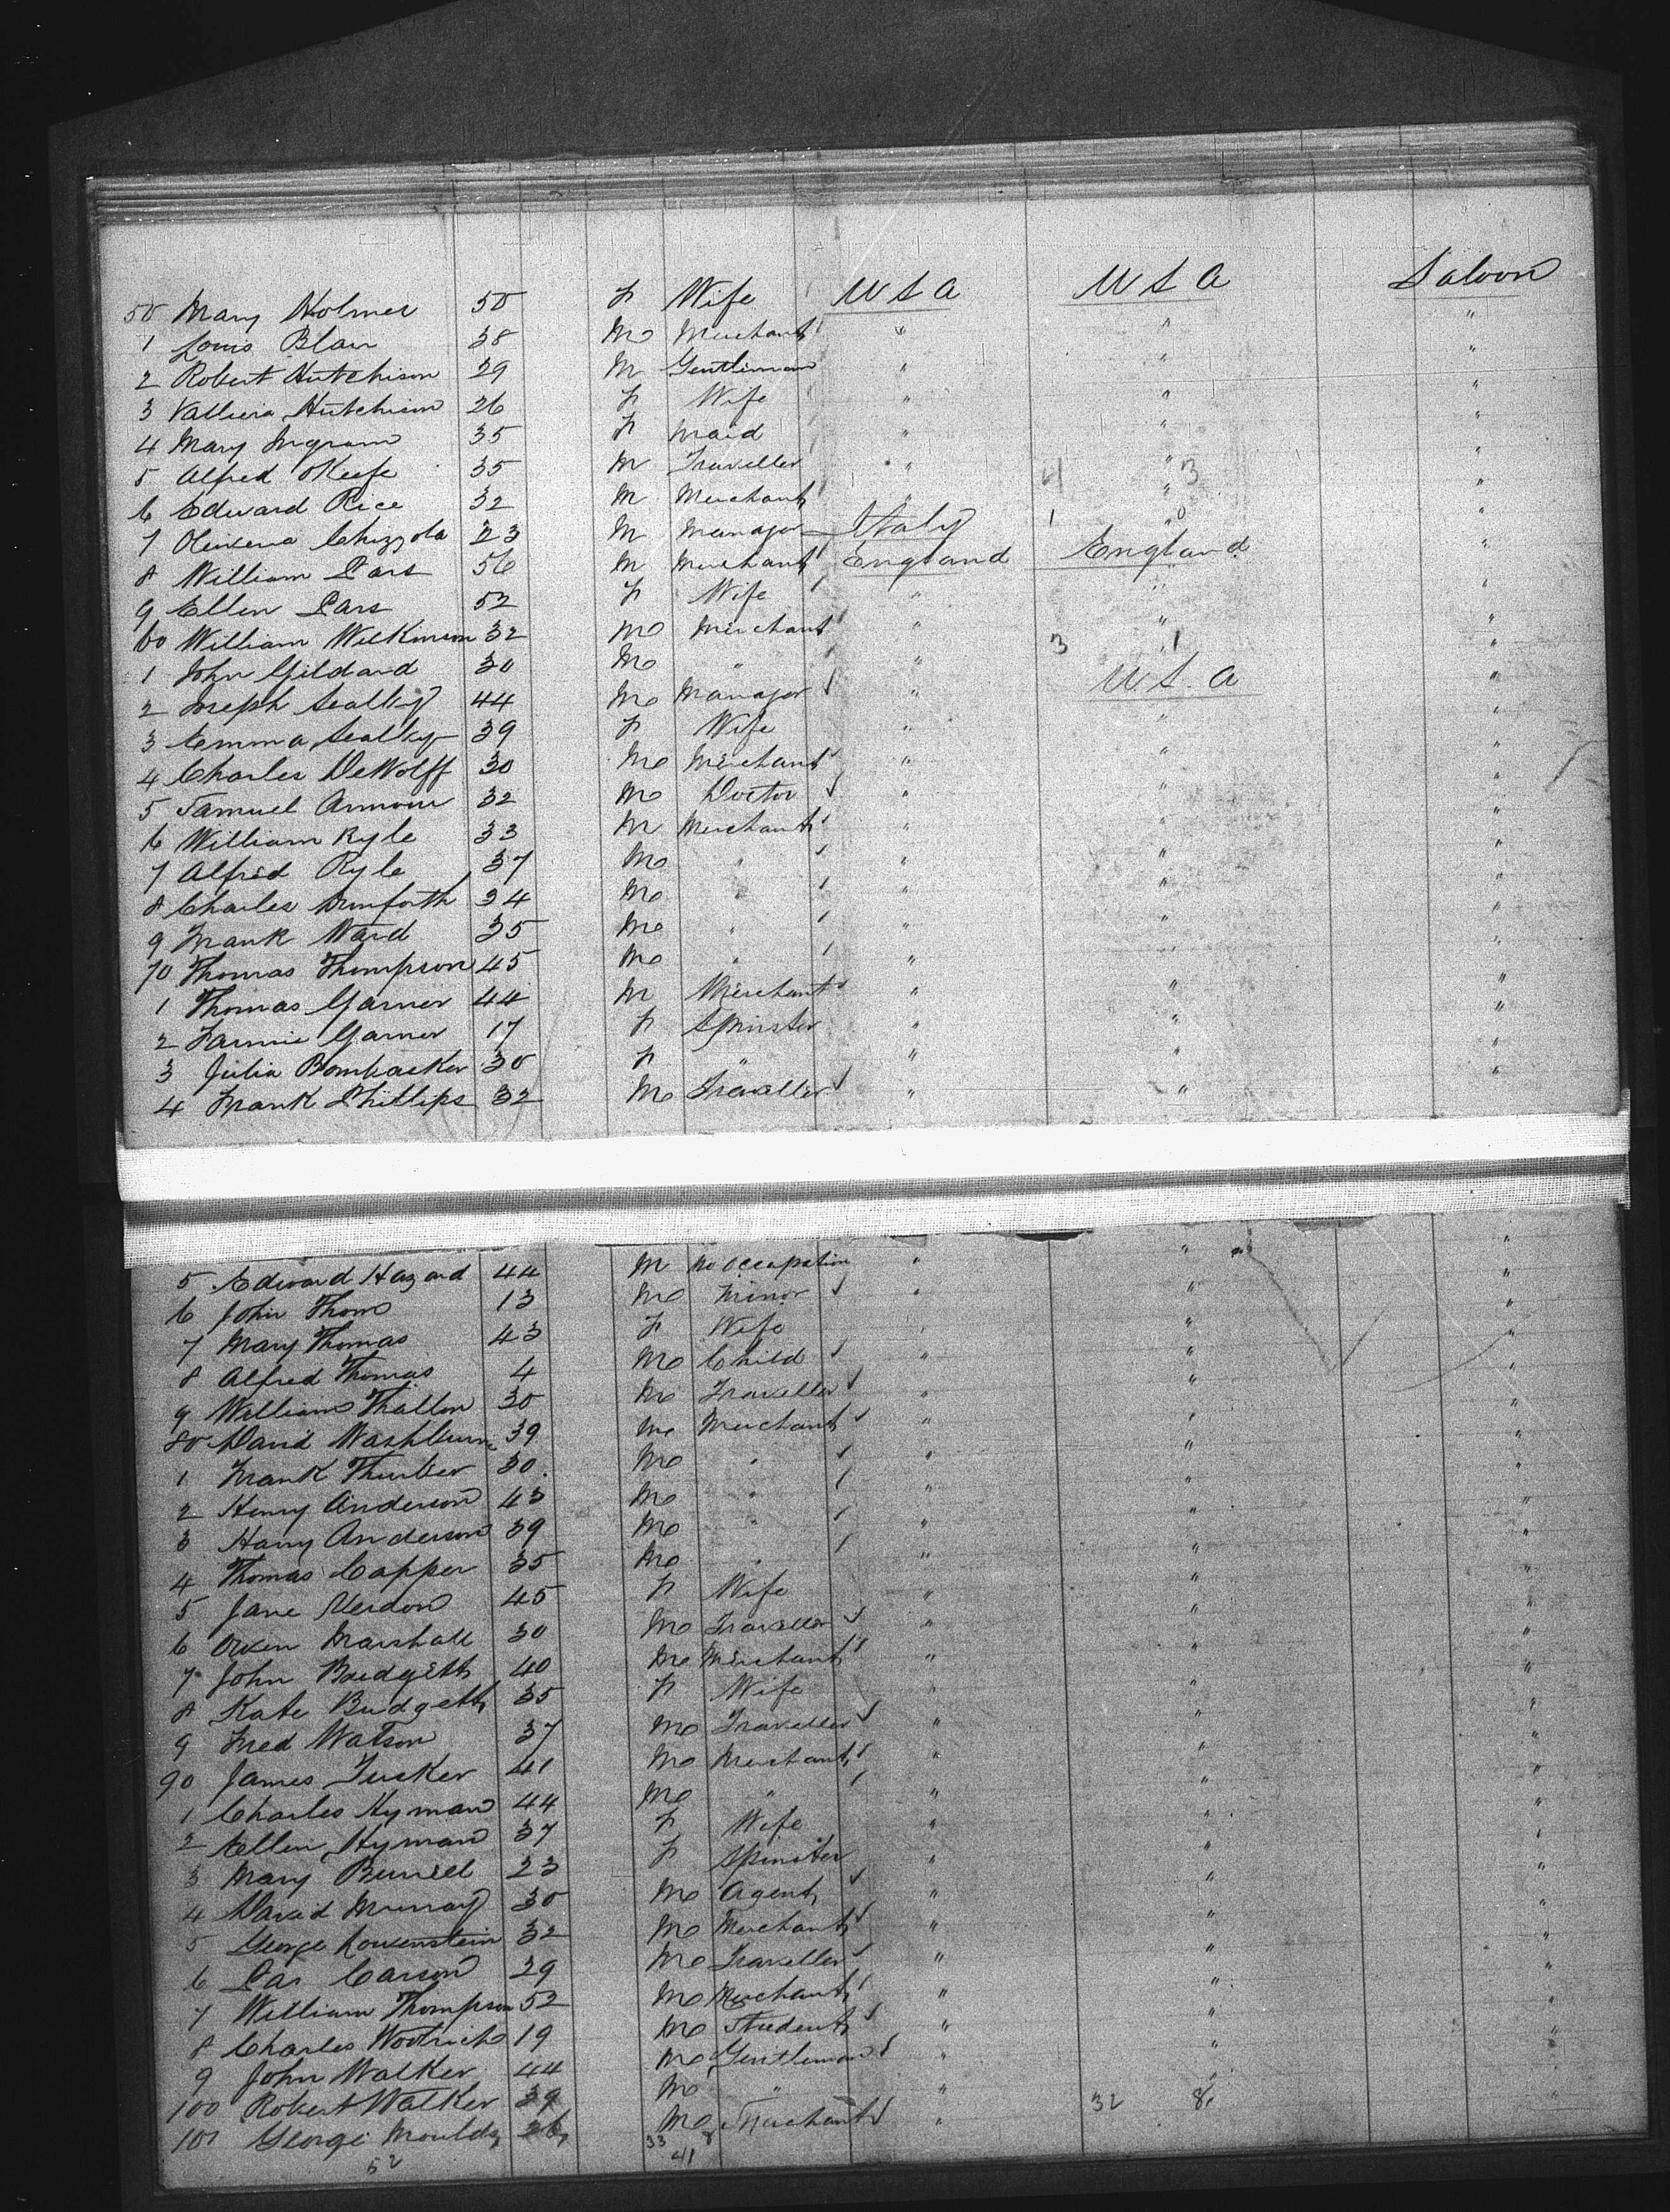 50 Mary Holmes 50 F Wife U S A U S A Saloon
1 Louis Blair 38 M Merchant " " "
2 Robert Hutchison 29 M Gentleman " " "
3 Hutchison 26 F Wife " " "
4 Mary Ingram 35 F Maid " " "
5 Alfred OKeefe 35 M Traveller " " "
6 Edward Rice 32 M Merchant " " "
7 Chizzola 23 M Manager Italy " "
8 William Pars 56 M Merchant England England "
9 Ellen Pars 52 F Wife " " "
60 William Wilkinson 32 M Merchant " " "
1 John Gildard 30 M " " "
2 Joseph 44 M Manager " U S A "
3 Emma 39 F Wife " " "
4 Charles DeWolff 30 M Merchant " " "
5 Samuel Armour 32 M Doctor " " "
6 William Ryle 33 M Merchant " " "
7 Alfred Ryle 37 M " " " "
8 Charles 34 M " " " "
9 Frank Ward 35 M " " " "
70 Thomas Thompson 45 M " " " "
1 Thomas Garner 44 M Merchant " " "
2 Fannie Garner 17 F Spinster " " "
3 Julia 30 F " " " "
4 Frank Phillips 32 M Traveller " " "
5 Edward Hazard 44 M No Occupation " " "
6 John Thom 13 M Minor " " "
7 Mary Thomas 43 F Wife " " "
8 Alfred Thomas 4 M Child " " "
9 William Thallon 30 M Traveller " " "
80 David Washburne 39 M Merchant " " "
1 Frank Thurber 30 M " " " "
2 Henry Anderson 43 M " " " "
3 Harry Anderson 39 M " " " "
4 Thomas Capper 35 M " " " "
5 Jane Verdon 45 F Wife " " "
6 Owen Marshall 30 M Traveller " " "
7 John Budgett 40 M Merchant " " "
8 Kate Budgett 35 F Wife " " "
9 Fred Watson 37 M Traveller " " "
90 James Tucker 41 M Merchant " " "
1 Charles Hyman 44 M " " " "
2 Ellen Hyman 37 F Wife " " "
3 Mary 23 F Spinster " " "
4 David Murray 30 M Agent " " "
5 George Lowenstein 32 M Merchant " " "
6 Carson 29 M Traveller " " "
7 William Thompson 52 M Merchant " " "
8 Charles 19 M Student " " "
9 John Walker 44 M Gentleman " " "
100 Robert Walker 39 M " " "
101 George 26 M Merchant " 32 8
52 33 8
41